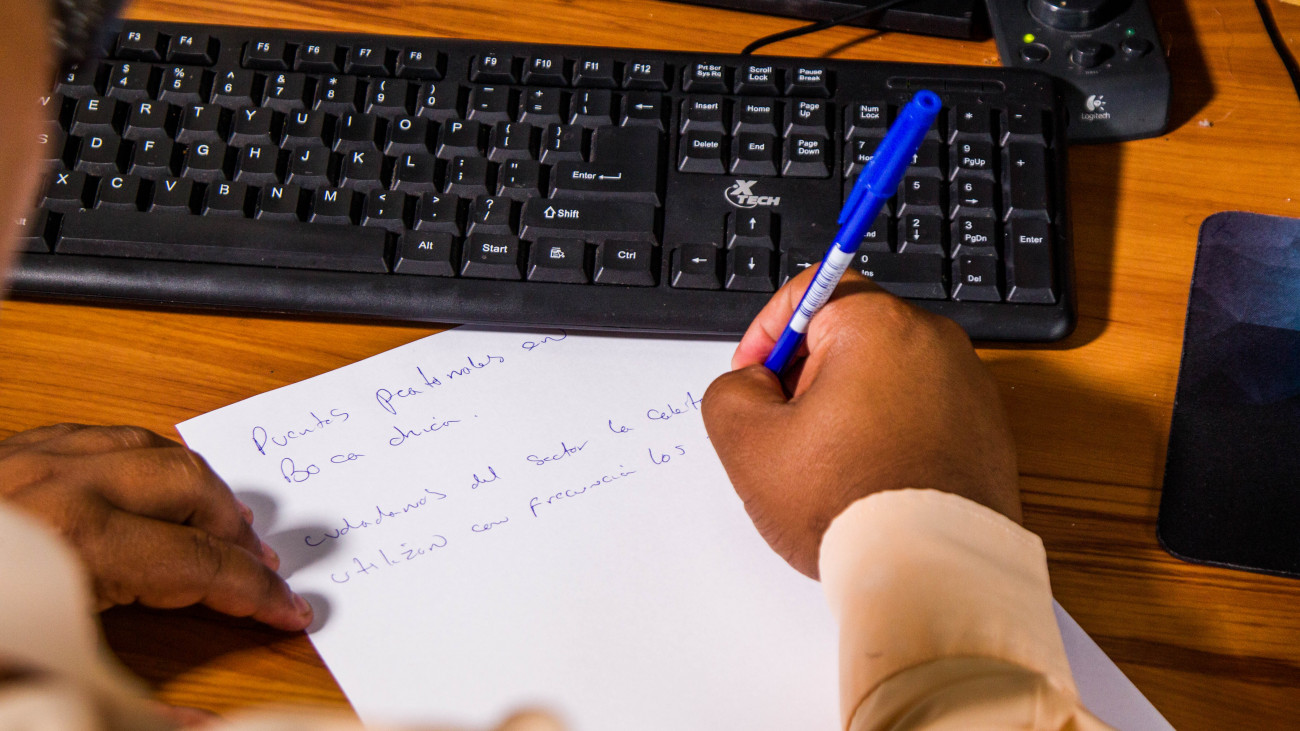 F3 F4 F5 F6 F7 F8 F9 F10 F11 F12 Prt Scr Sys Rq Scroll Lock Pause Break
3 $ 4 % 5 ^ 6 & 7 * 8 ( 9 ) 0 - + = | \ Insert Home Page Up Num Lock * -
W E R T Y U I O P { [ } ] Delete End Page Down 7 9 PgUp +
S D F G H J K L : ; " ' Enter 5 6
X C V B N M < , > . ? / Shift 2 3 PgDn Enter
Alt Alt Start Ctrl 0 Ins . Del
XTECH
Logitech
Puentes peatonales en
Boca chica.
ciudadanos del sector la Caleta
utilizan con frecuencia los